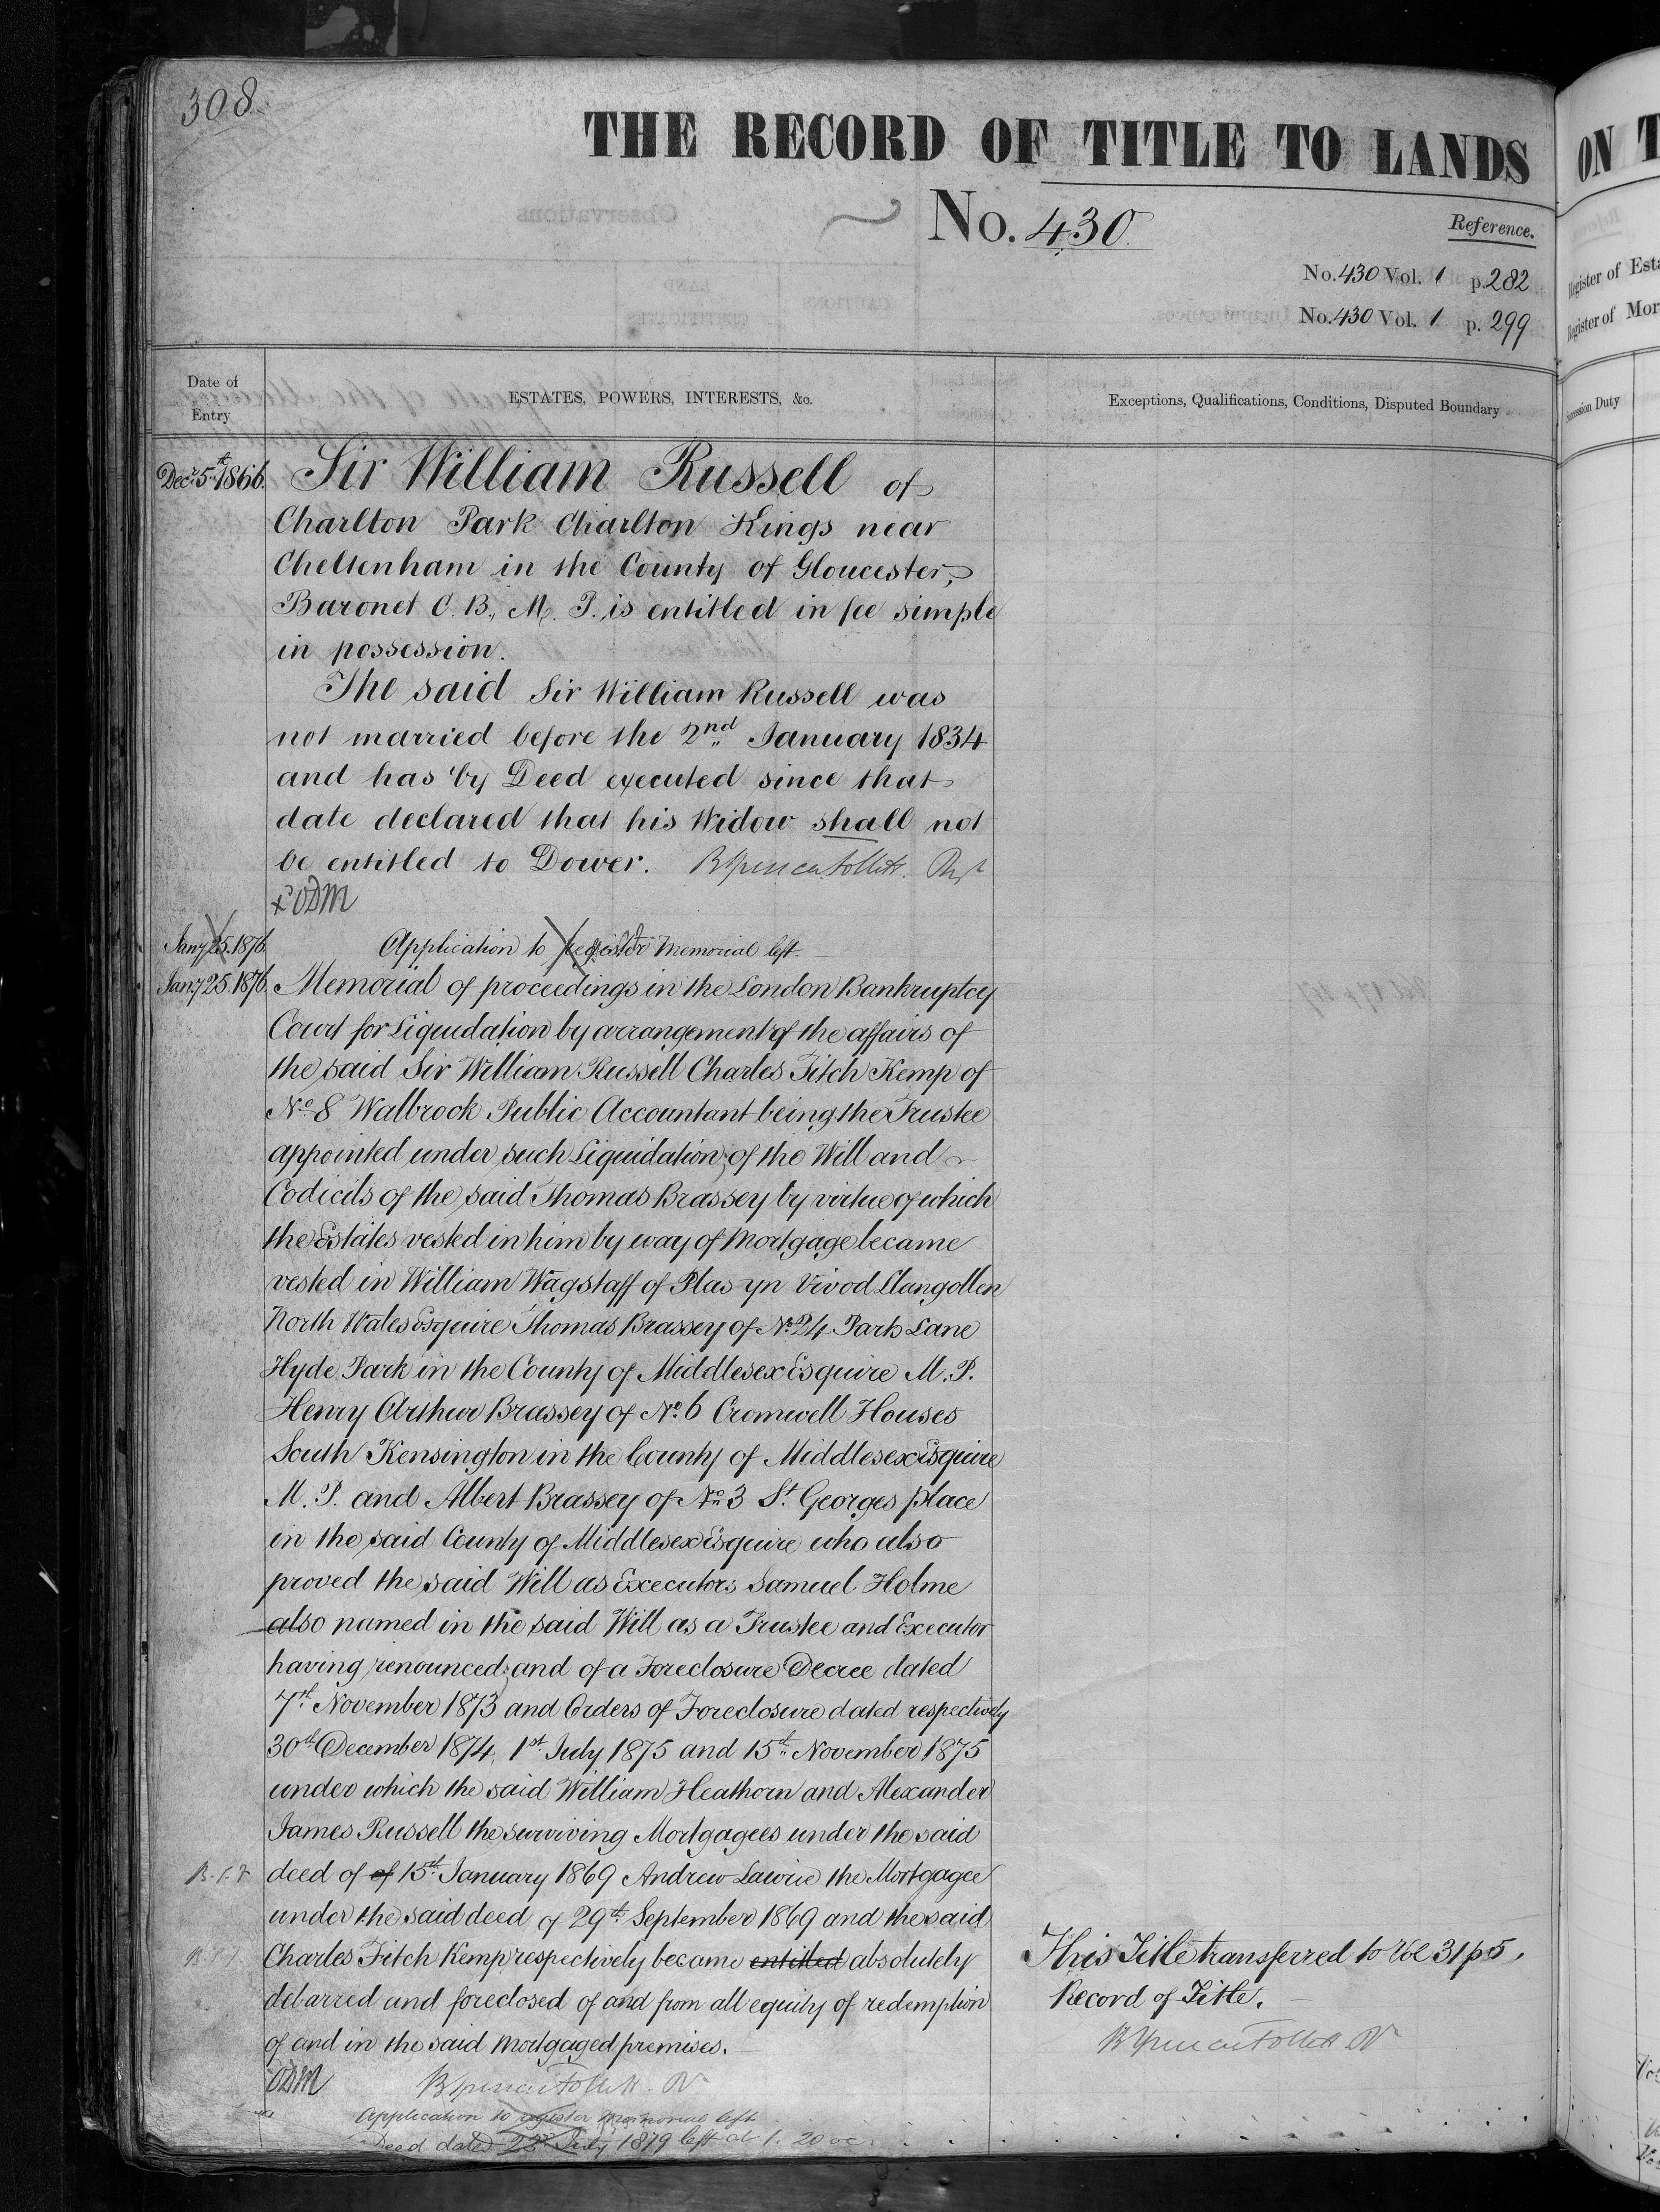 308
THE RECORD OF TITLE TO LANDS
No. 430
Reference.
No. 430 Vol. 1 p. 282
No. 430 Vol. 1 p. 299
Date of Entry
ESTATES, POWERS, INTERESTS, &c.
Exceptions, Qualifications, Conditions, Disputed Boundary
Decr. 5th 1866. Sir William Russell of
Charlton Park Charlton Kings near
Cheltenham in the County of Gloucester,
Baronet C. B., M. P. is entitled in fee simple
in possession.
The said Sir William Russell was
not married before the 2nd January 1834
and has by Deed executed since that
date declared that his Widow shall not
be entitled to Dower. B Spencer Follett. Rgr
ODM
Jany 25. 1876. Application to register Memorial left.
Jany 25. 1876. Memorial of proceedings in the London Bankruptcy
Court for Liquidation by arrangement of the affairs of
the said Sir William Russell Charles Fitch Kemp of
No. 8 Walbrook Public Accountant being the Trustee
appointed under such Liquidation; of the Will and
Codicils of the said Thomas Brassey by virtue of which
the Estates vested in him by way of Mortgage became
vested in William Wagstaff of Plas yn Vivod Llangollen
North Wales Esquire Thomas Brassey of No. 24 Park Lane
Hyde Park in the County of Middlesex Esquire M. P.
Henry Arthur Brassey of No. 6 Cromwell Houses
South Kensington in the County of Middlesex Esquire
M. P. and Albert Brassey of No. 3 St. Georges place
in the said County of Middlesex Esquire who also
proved the said Will as Executors Samuel Holme
also named in the said Will as a Trustee and Executor
having renounced; and of a Foreclosure Decree dated
7th November 1873 and Orders of Foreclosure dated respectively
30th December 1874, 1st July 1875 and 15th November 1875
under which the said William Heathorn and Alexander
James Russell the surviving Mortgagees under the said
B.S.F. deed of of 15th January 1869 Andrew Lawrie the Mortgagee
under the said deed of 29th September 1869 and the said
B.S.F. Charles Fitch Kemp respectively became entitled absolutely
debarred and foreclosed of and from all equity of redemption
of and in the said Mortgaged premises.
ODM B Spencer Follett. Rr
Application to register Memorial left
Deed dated 23rd July 1879 left at 1. 20
This Title transferred to Vol 31 p 5,
Record of Title.
B Spencer Follett Rr
ON T
Register of Esta
Register of Mor
Succession Duty